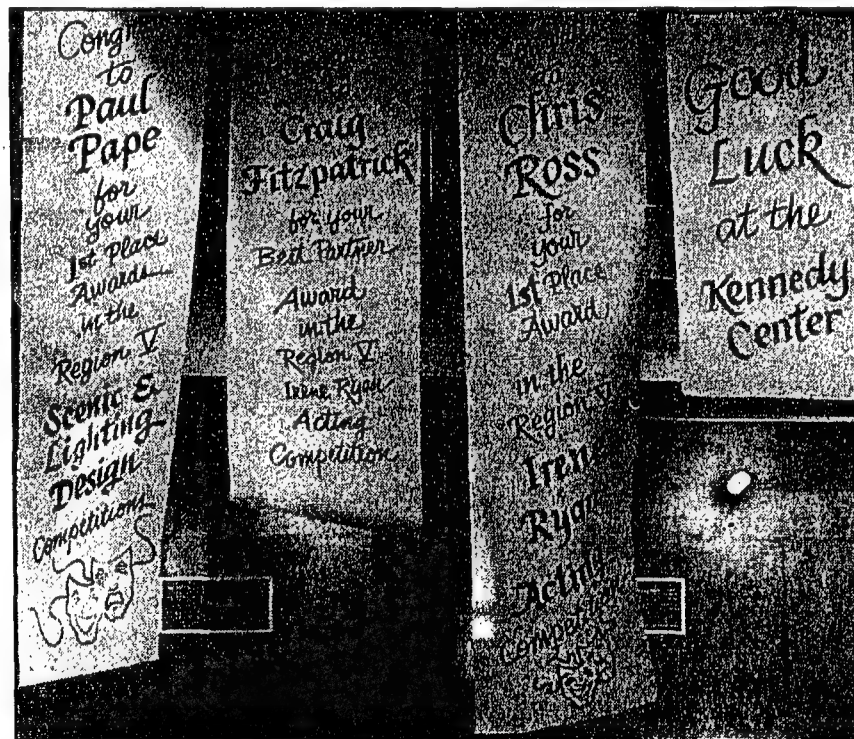 to
Paul
Pape
for
your
1st Place
Awards
in the
Region V
Scenic &
Lighting
Design
Competitions
Craig
Fitzpatrick
for your
Best Partner
Award
in the
Region V
Irene Ryan
Acting
Competition
to
Chris
Ross
for
your
1st Place
Award
in the
Region V
Ryan
Good
Luck
at the
Kennedy
Center